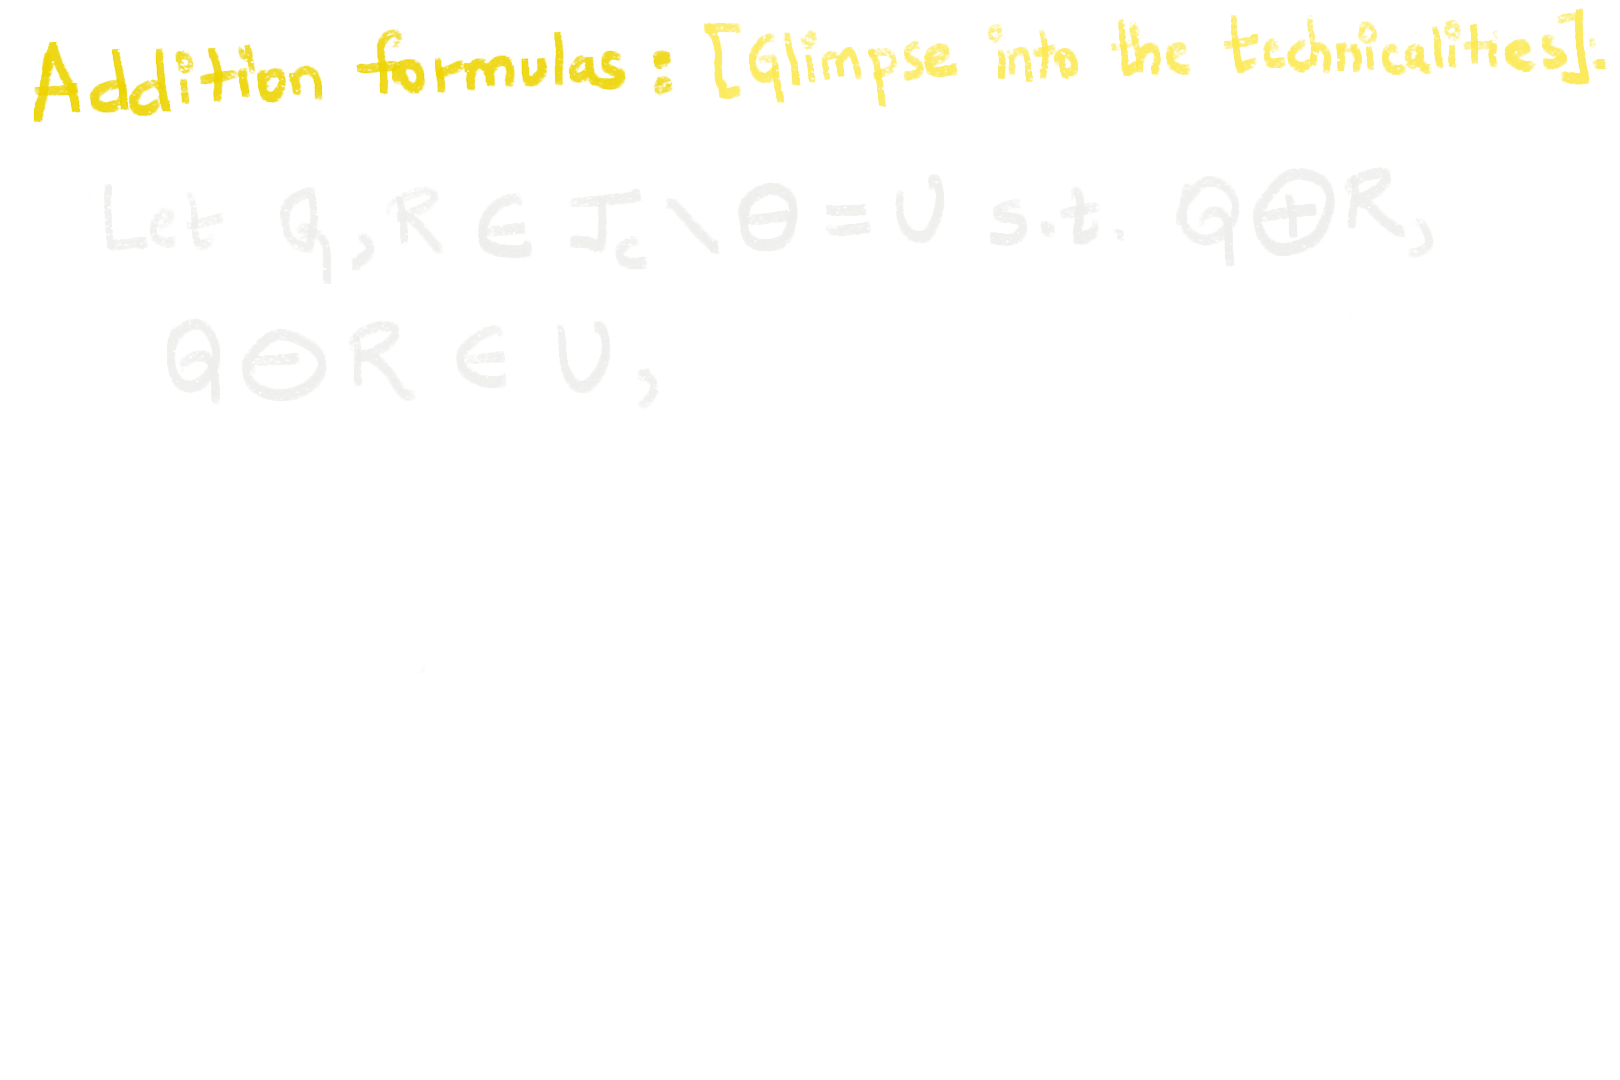 Addition formulas : [Glimpse into the technicalities].
Let Q, R ∈ J_C \ Θ = U s.t. Q⊕R,
Q⊖R ∈ U,